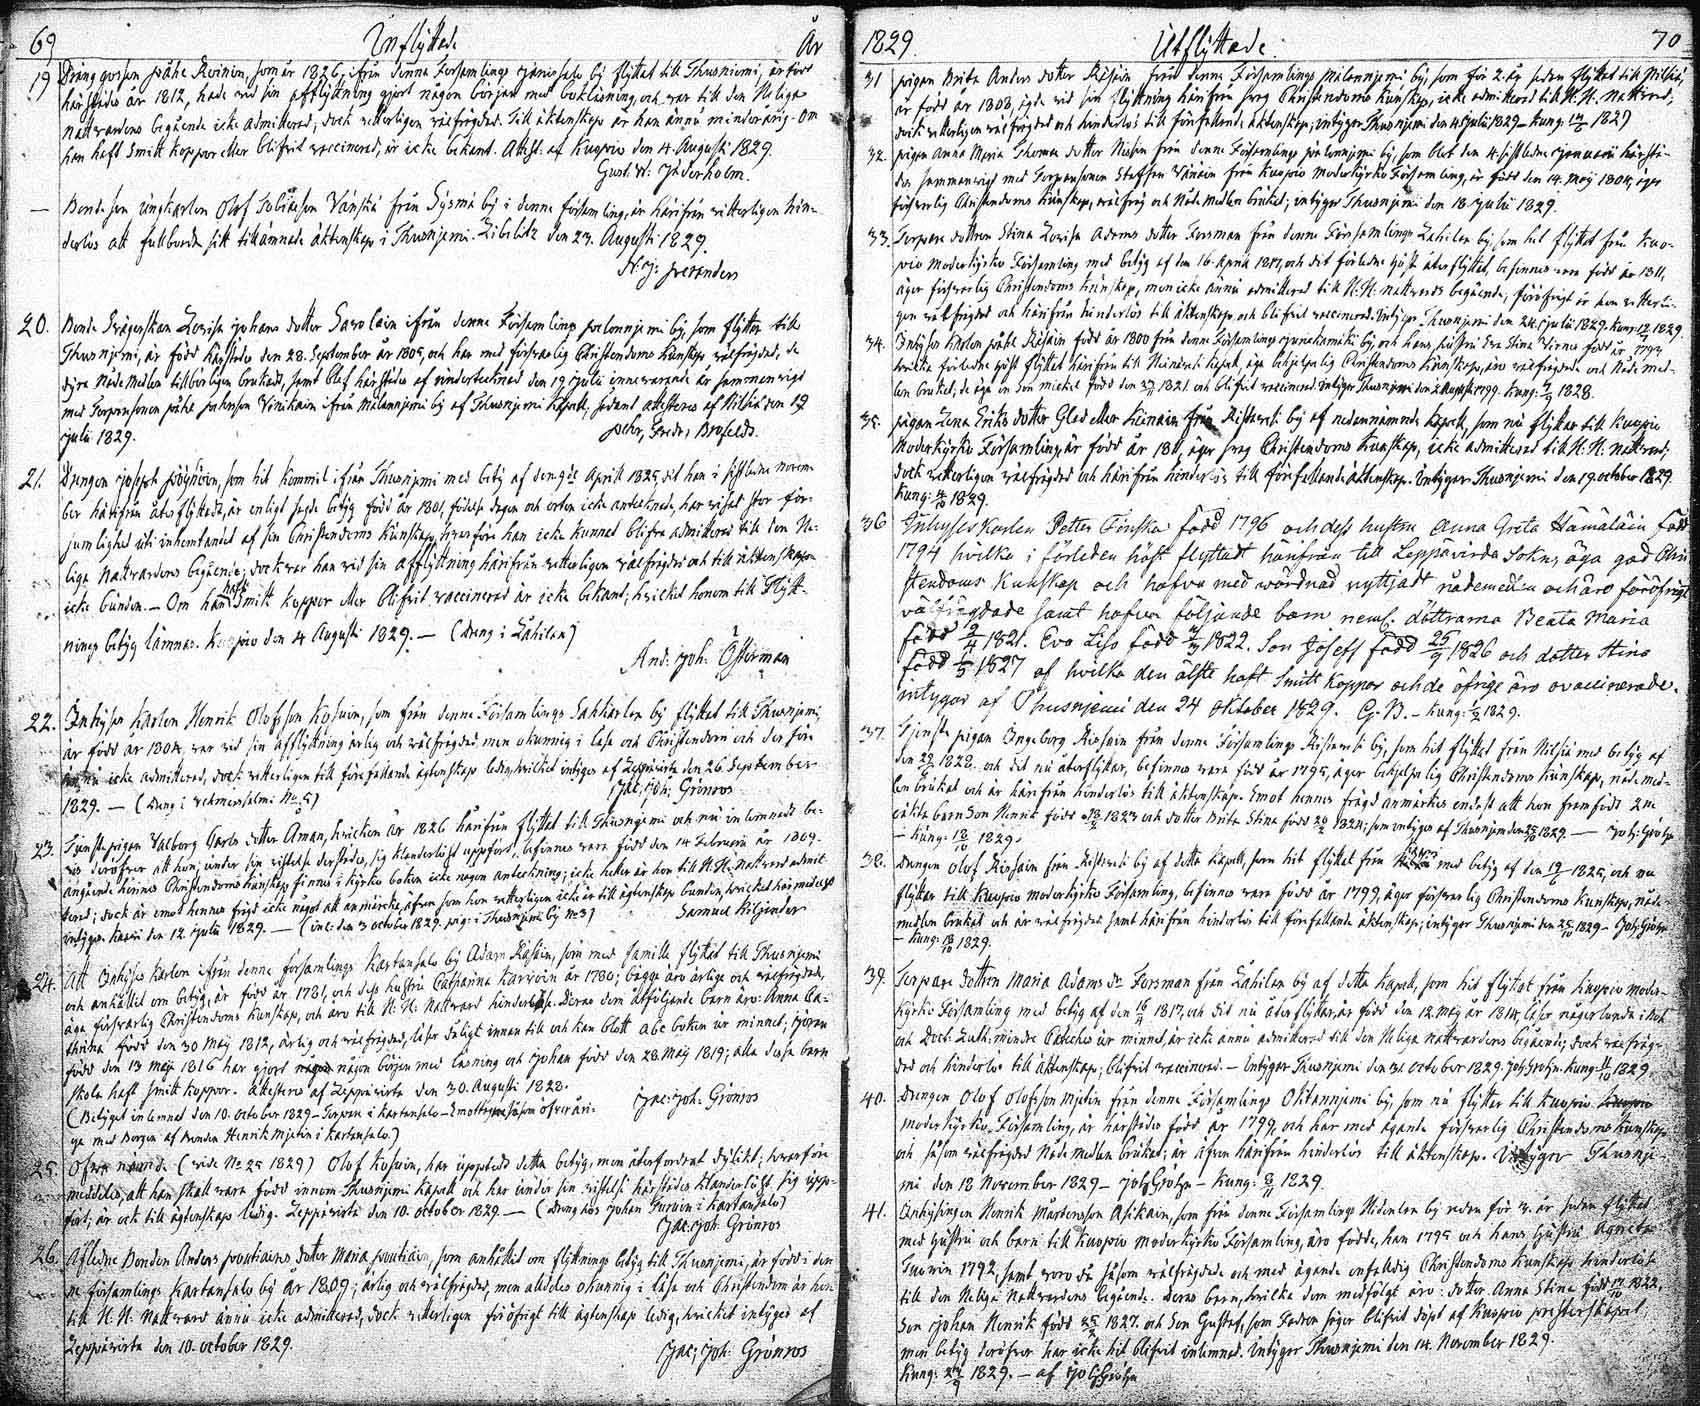 69 Inflyttade År
19 Dräng gossen Påhl Roinin, som år 1826, ifrån denna Församlings by flyttat till Thusniemi, är född
härstädes år 1812, hade vid sin afflyttning gjort någon början med bokläsning, och var till den Heliga
Nattvardens begående icke admitterad; dock veterligen välfrägdad. Till äktenskap är han ännu minderårig. Om
han haft Smitt koppor eller blifvit vaccinerad, är icke bekant. Attest. af Kuopio den 4 Augusti 1829.
Gust. W. Cederholm.
— Bonde son ungkarlen Olof från Sysmä by i denne församling, är härifrån vetterligen hin-
derlös att fullborda sitt tillämnade äktenskap i Thusnjemi. Libelitz den 23. Augusti 1829.
20. Bonde Enkan Lovisa Johans dotter Savolain ifrån denne Församlings by, som flyttar till
Thusnjemi, är född härstädes den 28. September år 1805, och har med försvarlig Christendoms kunskap välfrägdad, de
dyra Nådemedlen tillbörligen brukadt, samt blef härstädes af undertecknad den 19 Julii innevarande år sammanvigd
med Torparesonen Påhl Johnsson ifrån Melannjemi by af Thusnjemi Kapell, sådant attesteras af Nilsiä den 19
Julii 1829. Pehr Fredr. Brofeldt.
21. Drengen Joseph som hit kommit ifrån Thusnjemi med betyg af den 9de Aprill 1825, dit han i sistledne Novem-
ber härifrån återflyttadt, är enligt sagde betyg född år 1801, födelse dagen och orten icke antecknade, har visat stor för-
sumlighet uti inhemtandet af sin Christendoms kunskap, hvarföre han icke kunnat blifva admitterad till den He-
liga Nattvardens begående; dock var han vid sin afflyttning härifrån vetterligen välfrägdad och till äktenskap
icke bunden. — Om han haft Smitt koppor eller blifvit vaccinerad är icke bekant; hvilket honom till Flytt-
nings betyg lämnas. Kuopio den 4 Augusti 1829. — (Dräng i Lähilax)
And. Joh. Österman
22. Inhyses Karlen Henrik Olofsson Kosuin, som från denne Församlings Sahkarlax by flyttat till Thusnjemi,
är född år 1804, var vid sin afflyttning ärlig och välfrägdad, men okunnig i läsa och Christendom och der före
icke admitterad, dock vetterligen till före fallande ägtenskap ledig, hvilket intygar af Leppävirta den 26. September
1829. — (Dräng i No 5) Jac. Joh. Grönroos
23. Tjenste pigan Valborg Carls dotter Aman, hvilken år 1826 härifrån flyttat till Thusnjemi och nu inlemnadt be-
vis deröfver att hon, under sin vistelse derstädes, sig klanderlöst uppfört, befinnes vara född den 14 Februarii år 1809.
angående hennes Christendoms kunskap finnes i kyrko boken icke någon anteckning; icke heller är hon till H. H. Nattvard admit-
terad; dock är emot hennes frägd icke något att anmärka, äfven som hon vetterligen icke är till ägtenskap bunden, hvilket härmedelst
intygas. Kaavi den 12 Julii 1829. — (inl. den 3 October 1829. pig. i Thusnjemi by No 3) Samuel Kiljander
24. Att Inhyses karlen ifrån denne församlings Kartansalo by Adam Räsäin, som med famille flyttat till Thusnjemi
och anhållit om betyg, är född år 1781, och dess hustru Catharina Karvoin år 1780; bägge äro ärlige och välfrägdade,
äga försvarlig Christendoms kunskap, och äro till H. H. Nattvard hinderlöse. Deras dem åtföljande barn äro: Anna Ca-
thrina född den 30 Maij 1812, ärlig och välfrägdad, läser dåligt innan till och kan blott abc boken ur minnet; Göran
född den 13 Maij 1816 har gjort någon början med läsning och Johan född den 28 Maij 1819; alla dessa barn
skola haft smitt koppor. Attesteras af Leppävirta den 30. Augusti 1828.
(Betyget inlemnat den 10. October 1829 — Torpare i Kartansalo —
ga med Borgen af Bonden Henrik Mjetin i Kartansalo.) Jac: Joh: Grönroos
25. Ofvan nämnde (vide No 25 1829) Olof Kosuin, har uppbedt detta betyg, men återfordrat dylikt; hvarföre
meddeles, att han skall vara född innom Thusnjemi Kapell och har under sin vistelse härstädes klanderlöst sig upp-
fört; är ock till ägtenskap ledig. Leppävirta den 10. October 1829. — (Dräng hos Johan i Kartansalo)
Jac: Joh: Grönroos
26. Afledne Bonden Anders Poutiains dotter Maria Poutiain, som anhållit om flyttnings betyg till Thusnjemi, är född i den-
ne församlings Kartansalo by år 1809; ärlig och välfrägdad, men alldeles okunnig i läsa och Christendom är hon
till H. H. Nattvard ännu icke admitterad, dock vetterligen för öfrigt till ägtenskap ledig, hvilket intygas af
Leppävirta den 10. October 1829.
Jac; Joh: Grönroos
1829. Utflyttade. 70
31 Pigan Brita Anders dotter Räsäin från denne Församlings Melannjemi by, som för 2. år sedan flyttat till Nilsiä,
är född år 1808, ägde vid sin flyttning härifrån svag Christendoms kunskap, icke admitterad till H. H. Nattvard;
dock vetterligen välfrägdad och hinderlös till förefallande äktenskap; intygar Thusnjemi den 4 Julii 1829 — Kung: 1829
32. Pigan Anna Maria Thomas dotter från denne Församlings by, som blef den 4 sistledne Januarii härstä-
des sammanvigd med Torparesonen Staffan Vänäin från Kuopio Moderkyrko Församling, är född den 14. Maij 1804, äger
försvarlig Christendoms kunskap, välfräg och Nåde medlen brukat; intygar Thusnjemi den 18 Julii 1829.
33. Torpare dottren Stina Lovisa Adams dotter Forsman från denne Församlings Lähilax by, som hit flyttat från Kuo-
pio Moderkyrko Församling med betyg af den 16 Aprill 1817, och dit förledne höst återflyttat, befinnes vara född år 1811,
äger försvarlig Christendoms kunskap, men icke ännu admitterad till H. H: Nattvards begående, föröfrigt är hon vetterli-
gen välfrägdad och härifrån hinderlös till äktenskap och blifvit vaccinerad. Intygar Thusnjemi den 24. Julii 1829. Kung: 1829
34. Inhyses Karlen Påhl Räsäin född år 1800 från denne Församlings by, och hans hustru Eva Stina född år 1797
hvilka förledne höst flyttat härifrån till Kapell, äga behjelpelig Christendoms kunskap, äro välfrägdade och Nåde med-
len brukat; de äga en Son Michel född den 1821. och blifvit vaccinerad. Intygar Thusnjemi den Kung: 1828.
35. Pigan Lena Eriks dotter Glad eller från Ristvesi by af nedannämnde Kapell, som nu flyttar till Kuopio
Moderkyrko Församling, är född år 1811, äger svag Christendoms kunskap, icke admitterad till H. H. Nattvard,
dock vetterligen välfrägdad och härifrån hinderlös till förefallande äktenskap. Intygar Thusnjemi den 19. October 1829.
Kung: 4/10 1829.
36 Inhyses karlen Petter Finska född 1796 och dess hustru Anna Greta Hämäläin född
1794 hvilka i förleden höst flyttadt härifrån till Leppävirda Sokn; äga god Chri-
stendoms kunskap och hafva med wördnad nyttjadt nådemedlen och äro föröfrigt
välfrägdade samt hafva följande barn neml. döttrarna Beata Maria
född 2/4 1821. Eva Lisa född 1822. Son Josef född 25/9 1826 och dotter Stina
född 1827 af hvilka den älste haft Smitt koppor och de öfrige äro ovaccinerade.
intygar af Thusnjemi den 24 oktober 1829. G. B. — Kung: 1829.
37. Tjenste pigan Ingeborg Räsäin från denne Församlings Ristvesi by, som hit flyttat från Nilsiä med betyg af
den 1828 och dit nu återflyttar, befinnes vara född år 1795, äger behjelpelig Christendoms kunskap, nåde med-
len brukat och är härifrån hinderlös till äktenskap. Emot hennes frägd anmärkes endast att hon framfödt 2ne
oäkta barn Son Henrik född 1823 och dotter Brita Stina född 1824; som intygas af Thusnjemi den 25/10 1829. — Joh: Gröhn
— Kung: 18/10 1829.
38. Drengen Olof Räsäin från Ristvesi by af detta Kapell, som hit flyttat från med betyg af den 1825, och nu
flyttar till Kuopio moderkyrko Församling, befinnes vara född år 1799, äger försvarlig Christendoms kunskap, nåde-
medlen brukat och är välfrägdad samt härifrån hinderlös till förefallande äktenskap; intygar Thusnjemi den 25/10 1829 — Joh: Gröhn
— Kung: 18/10 1829.
39. Torpare dottren Maria Adams dr Forsman från Lähilax by af detta Kapell, som hit flyttat från Kuopio moder-
kyrko Församling med betyg af den 16/4 1817, och dit nu återflyttar, är född den 12 Maij år 1814, läser någorlunda i bok
och Doct: Luth: mindre Cateches ur minnet, är icke ännu admitterad till den Heliga Nattvardens begående; dock välfräg-
dad och hinderlös till äktenskap; blifvit vaccinerad. — Intygar Thusnjemi den 31 October 1829. Joh Gröhn. Kung: 11/10 1829.
40. Drengen Olof Olofsson Mjetin från denne Församlings Ohtaanjemi by, som nu flyttar till Kuopio
moderkyrko Församling, är härstädes född år 1799, och har med ägande försvarlig Christendoms kunskap
och såsom välfrägdad Nåde medlen brukat; är äfven härifrån hinderlös till äktenskap. Intygar Thusnje-
mi den 18 November 1829 — Joh Gröhn — Kung: 8/11 1829.
41. Inhysingen Henrik Mårtensson Asikain, som från denne Församlings by redan för 3. år sedan flyttat
med hustru och barn till Kuopio moderkyrko Församling, äro födde, han 1795 och hans hustru Agneta
Tuovin 1792, samt voro då såsom välfrägdade och med ägande enfalldig Christendoms kunskap hinderlöse
till den Heliga Nattvardens begående. Deras barn, hvilka dem medfölgt äro: dotter Anna Stina född 1822,
Son Johan Henrik född 25/2 1827. och Son Gustaf, som Fadren säger blifvit döpt af Kuopio presterskapet,
men betyg deröfver har icke hit blifvit inlemnad. Intygar Thusnjemi den 14. November 1829.
Kung: 1829. — af Joh Gröhn